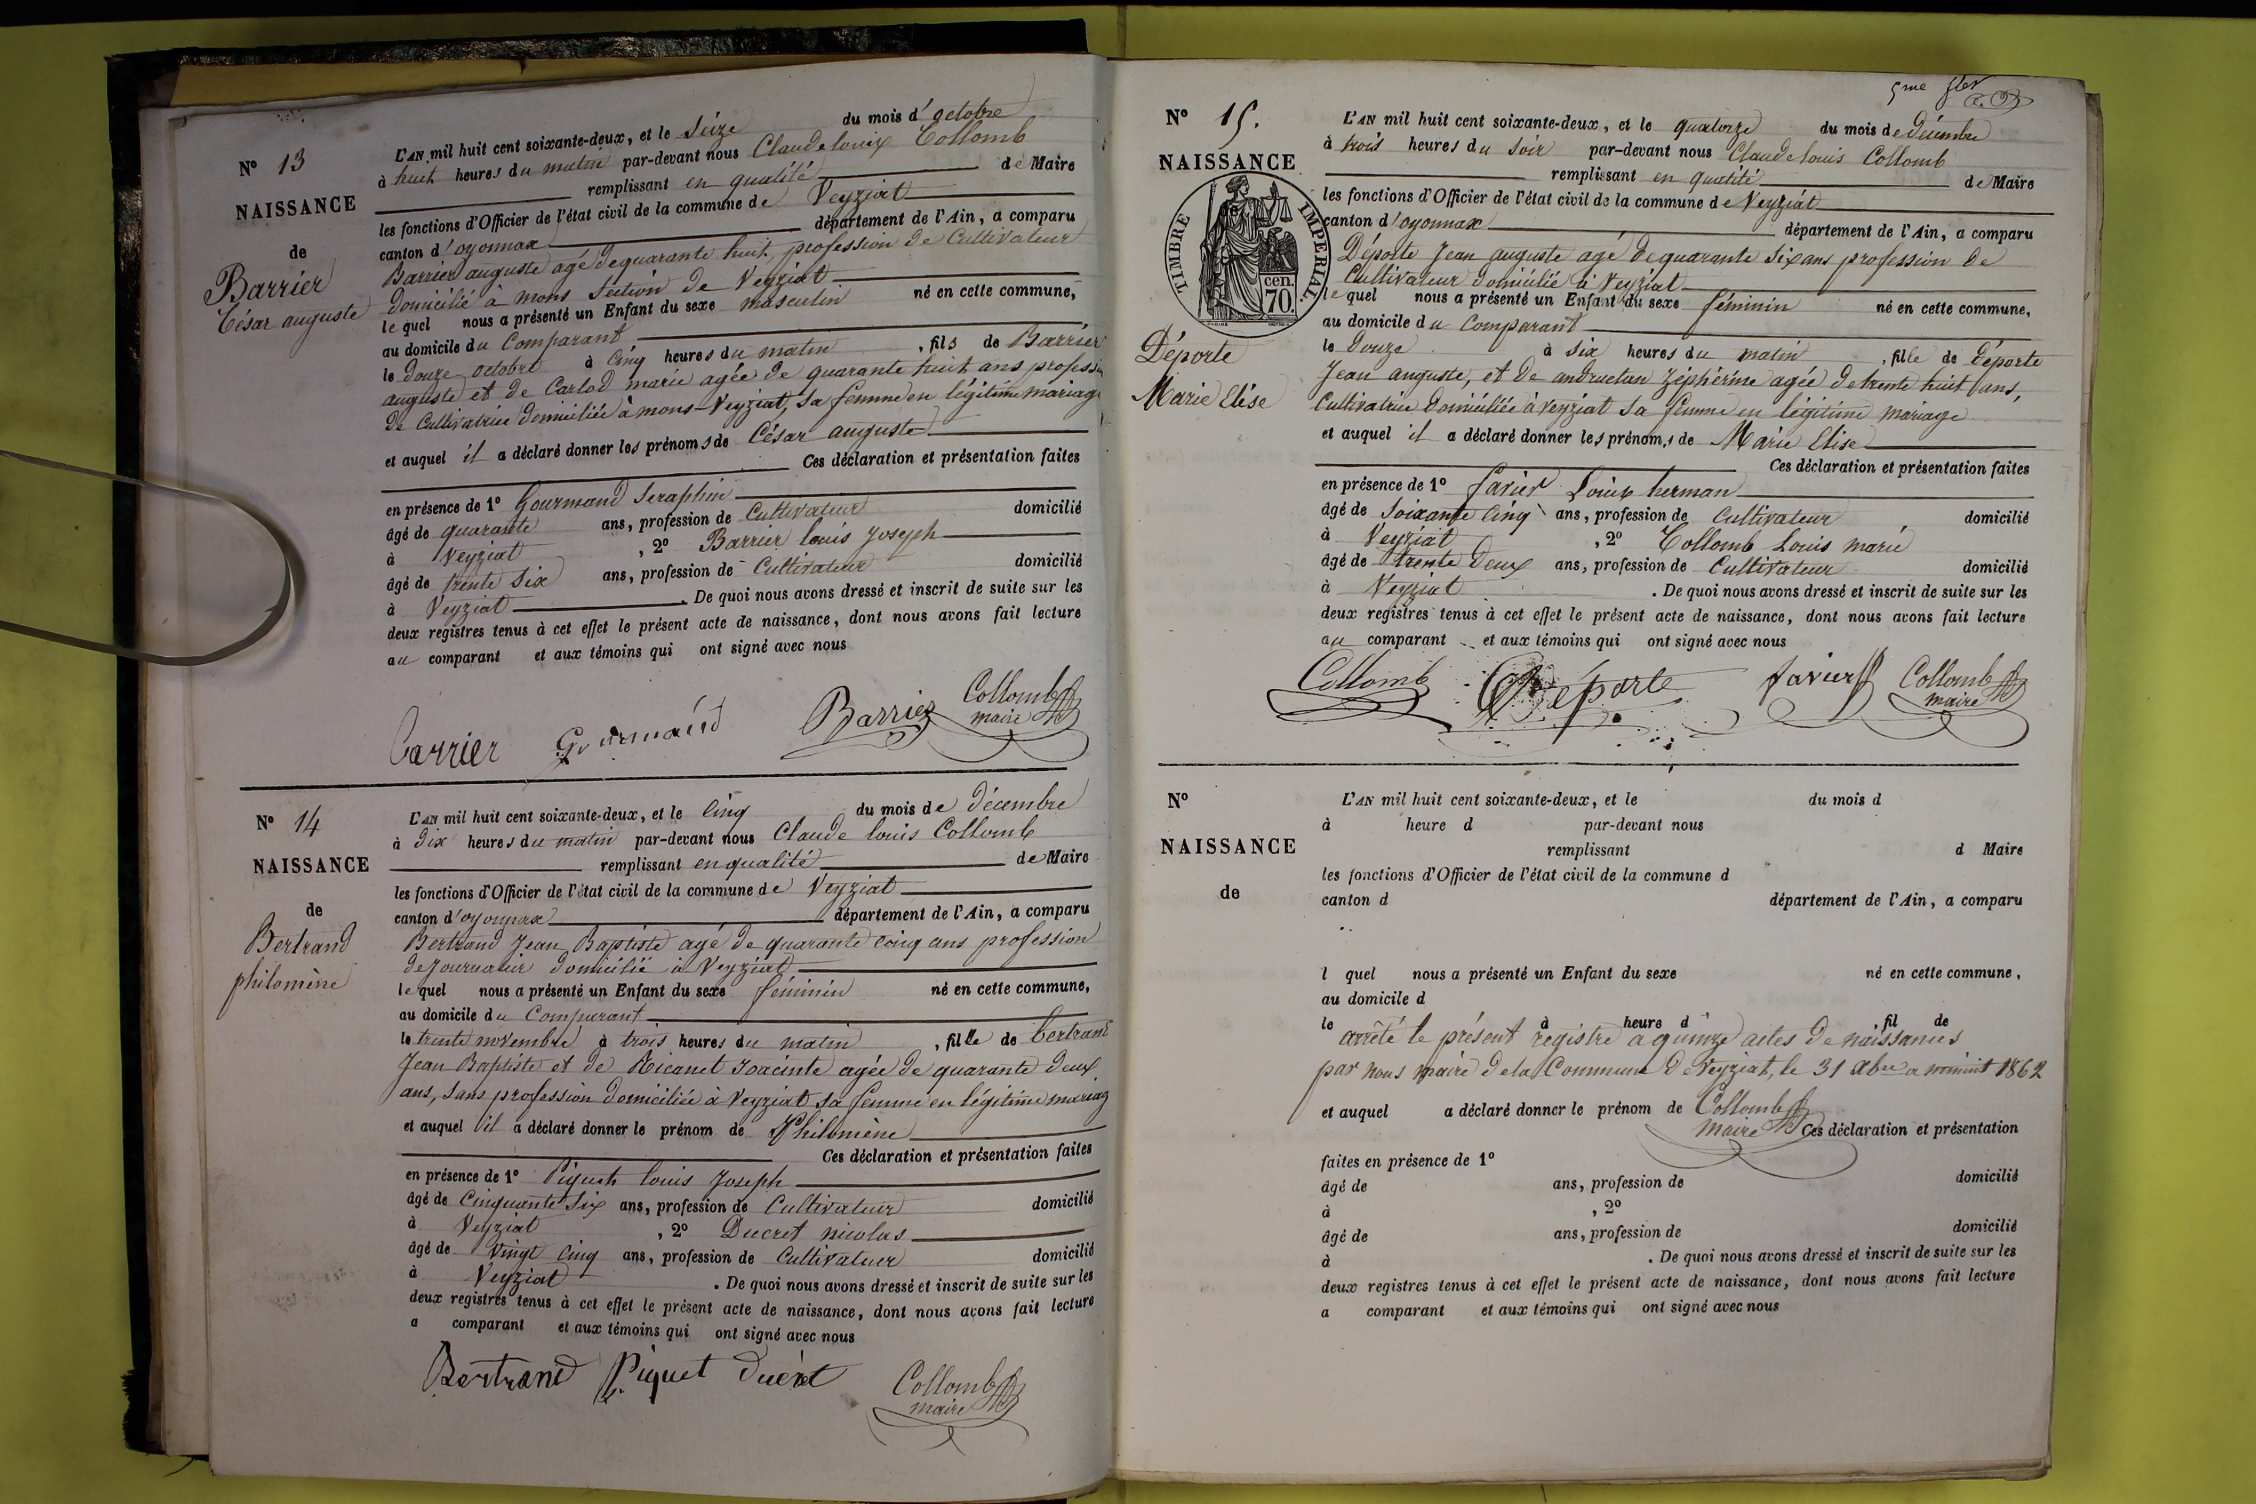 N° 13
NAISSANCE
de
Barrier
César auguste
L'AN mil huit cent soixante-deux, et le seize du mois d'octobre
à huit heures du matin par-devant nous Claude louis Collomb
remplissant en qualité de Maire
les fonctions d'Officier de l'état civil de la commune de Veyziat
canton d'oyonnax département de l'Ain, a comparu
Barrier auguste agé de quarante huit, profession de Cultivateur
domicilié à mons section de Veyziat
le quel nous a présenté un Enfant du sexe masculin né en cette commune,
au domicile du Comparant
le douze octobre à cinq heures du matin, fils de Barrier
auguste et de Carlod marie agée de quarante huit ans professi
de Cultivatrice domiciliée à mons-Veyziat, sa femme en légitime mariage
et auquel il a déclaré donner les prénoms de César auguste
Ces déclaration et présentation faites
en présence de 1° Gourmand Seraphin
âgé de quarante ans, profession de Cultivateur domicilié
à Veyziat, 2° Barrier louis Joseph
âgé de trente six ans, profession de Cultivateur domicilié
à Veyziat. De quoi nous avons dressé et inscrit de suite sur les
deux registres tenus à cet effet le présent acte de naissance, dont nous avons fait lecture
au comparant et aux témoins qui ont signé avec nous
Barrier Gourmand Barrier Collomb
maire
N° 14
NAISSANCE
de
Bertrand
philomène
L'AN mil huit cent soixante-deux, et le cinq du mois de décembre
à dix heures du matin par-devant nous Claude louis Collomb
remplissant en qualité de Maire
les fonctions d'Officier de l'état civil de la commune de Veyziat
canton d'oyonnax département de l'Ain, a comparu
Bertrand Jean Baptiste agé de quarante cinq ans profession
de Journalier domicilié à Veyziat
le quel nous a présenté un Enfant du sexe féminin né en cette commune,
au domicile du Comparant
le trente novembre à trois heures du matin, fille de bertrand
Jean Baptiste et de Ricanet Joacinte agée de quarante deux
ans, sans profession domiciliée à Veyziat sa femme en légitime mariag
et auquel il a déclaré donner le prénom de Philomène
Ces déclaration et présentation faites
en présence de 1° Piquet louis Joseph
âgé de cinquante six ans, profession de Cultivateur domicilié
à Veyziat, 2° Ducret nicolas
âgé de vingt cinq ans, profession de Cultivateur domicilié
à Veyziat. De quoi nous avons dressé et inscrit de suite sur les
deux registres tenus à cet effet le présent acte de naissance, dont nous avons fait lecture
a comparant et aux témoins qui ont signé avec nous
Bertrand Piquet Ducret Collomb
maire
5me
N° 15.
NAISSANCE
de
TIMBRE IMPERIAL.
70. cen.
Déporte
Marie Elise
L'AN mil huit cent soixante-deux, et le quatorze du mois de décembre
à trois heures du soir par-devant nous Claude louis Collomb
remplissant en qualité de Maire
les fonctions d'Officier de l'état civil de la commune de Veyziat
canton d'oyonnax département de l'Ain, a comparu
Déporte Jean auguste agé de quarante six ans profession de
Cultivateur domicilié à Veyziat
le quel nous a présenté un Enfant du sexe féminin né en cette commune,
au domicile du Comparant
le douze à six heures du matin, fille de Déporte
Jean auguste, et de andruetan Zéphérine agée de trente huit ans,
Cultivatrice domiciliée à Veyziat sa femme en légitime mariage
et auquel il a déclaré donner les prénoms de Marie Elise
Ces déclaration et présentation faites
en présence de 1° favier Louis herman
âgé de soixante cinq ans, profession de Cultivateur, domicilié
à Veyziat, 2° Collomb Louis marie
âgé de trente deux ans, profession de Cultivateur domicilié
à Veyziat. De quoi nous avons dressé et inscrit de suite sur les
deux registres tenus à cet effet le présent acte de naissance, dont nous avons fait lecture
au comparant et aux témoins qui ont signé avec nous
Collomb Déporte favier Collomb
maire
N°
NAISSANCE
de
L'AN mil huit cent soixante-deux, et le du mois d
à heure d par-devant nous
remplissant d Maire
les fonctions d'Officier de l'état civil de la commune d
canton d département de l'Ain, a comparu
l quel nous a présenté un Enfant du sexe né en cette commune,
au domicile d
le à heure d fil de
arrêté le présent registre à quinze actes de naissances
par nous maire de la Commune de Veyziat, le 31 Xbre a minuit 1862
et auquel a déclaré donner le prénom de Collomb
maire Ces déclaration et présentation
faites en présence de 1°
âgé de ans, profession de domicilié
à , 2°
âgé de ans, profession de domicilié
à . De quoi nous avons dressé et inscrit de suite sur les
deux registres tenus à cet effet le présent acte de naissance, dont nous avons fait lecture
a comparant et aux témoins qui ont signé avec nous